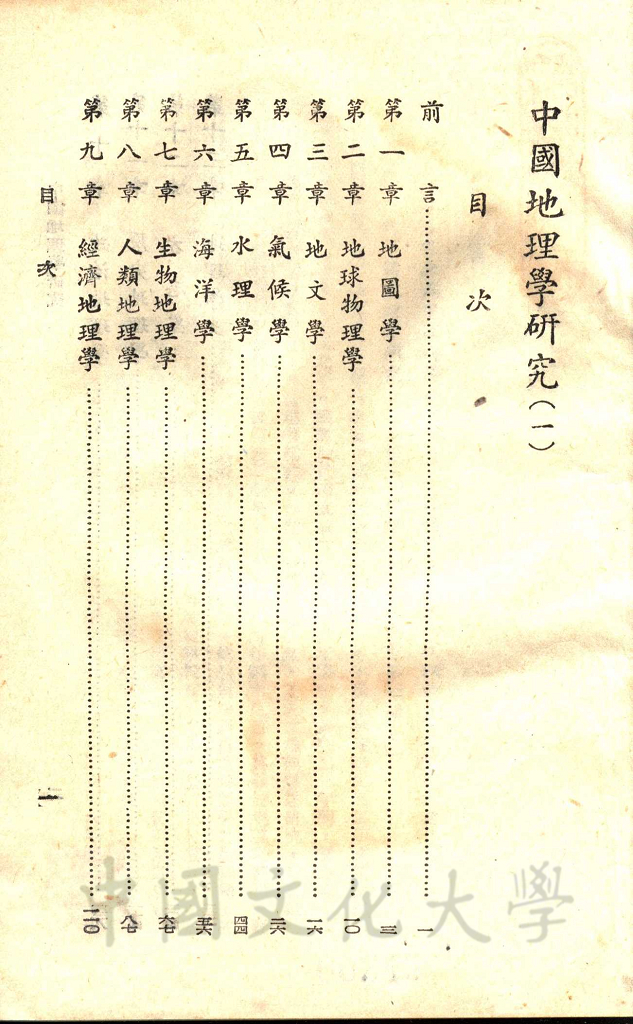 中國地理學研究(一)
目次
前言……一
第一章 地圖學……三
第二章 地球物理學……一〇
第三章 地文學……一六
第四章 氣候學……二六
第五章 水理學……四四
第六章 海洋學……五六
第七章 生物地理學……六七
第八章 人類地理學……八七
第九章 經濟地理學……一二〇
目次
一
中國文化大學